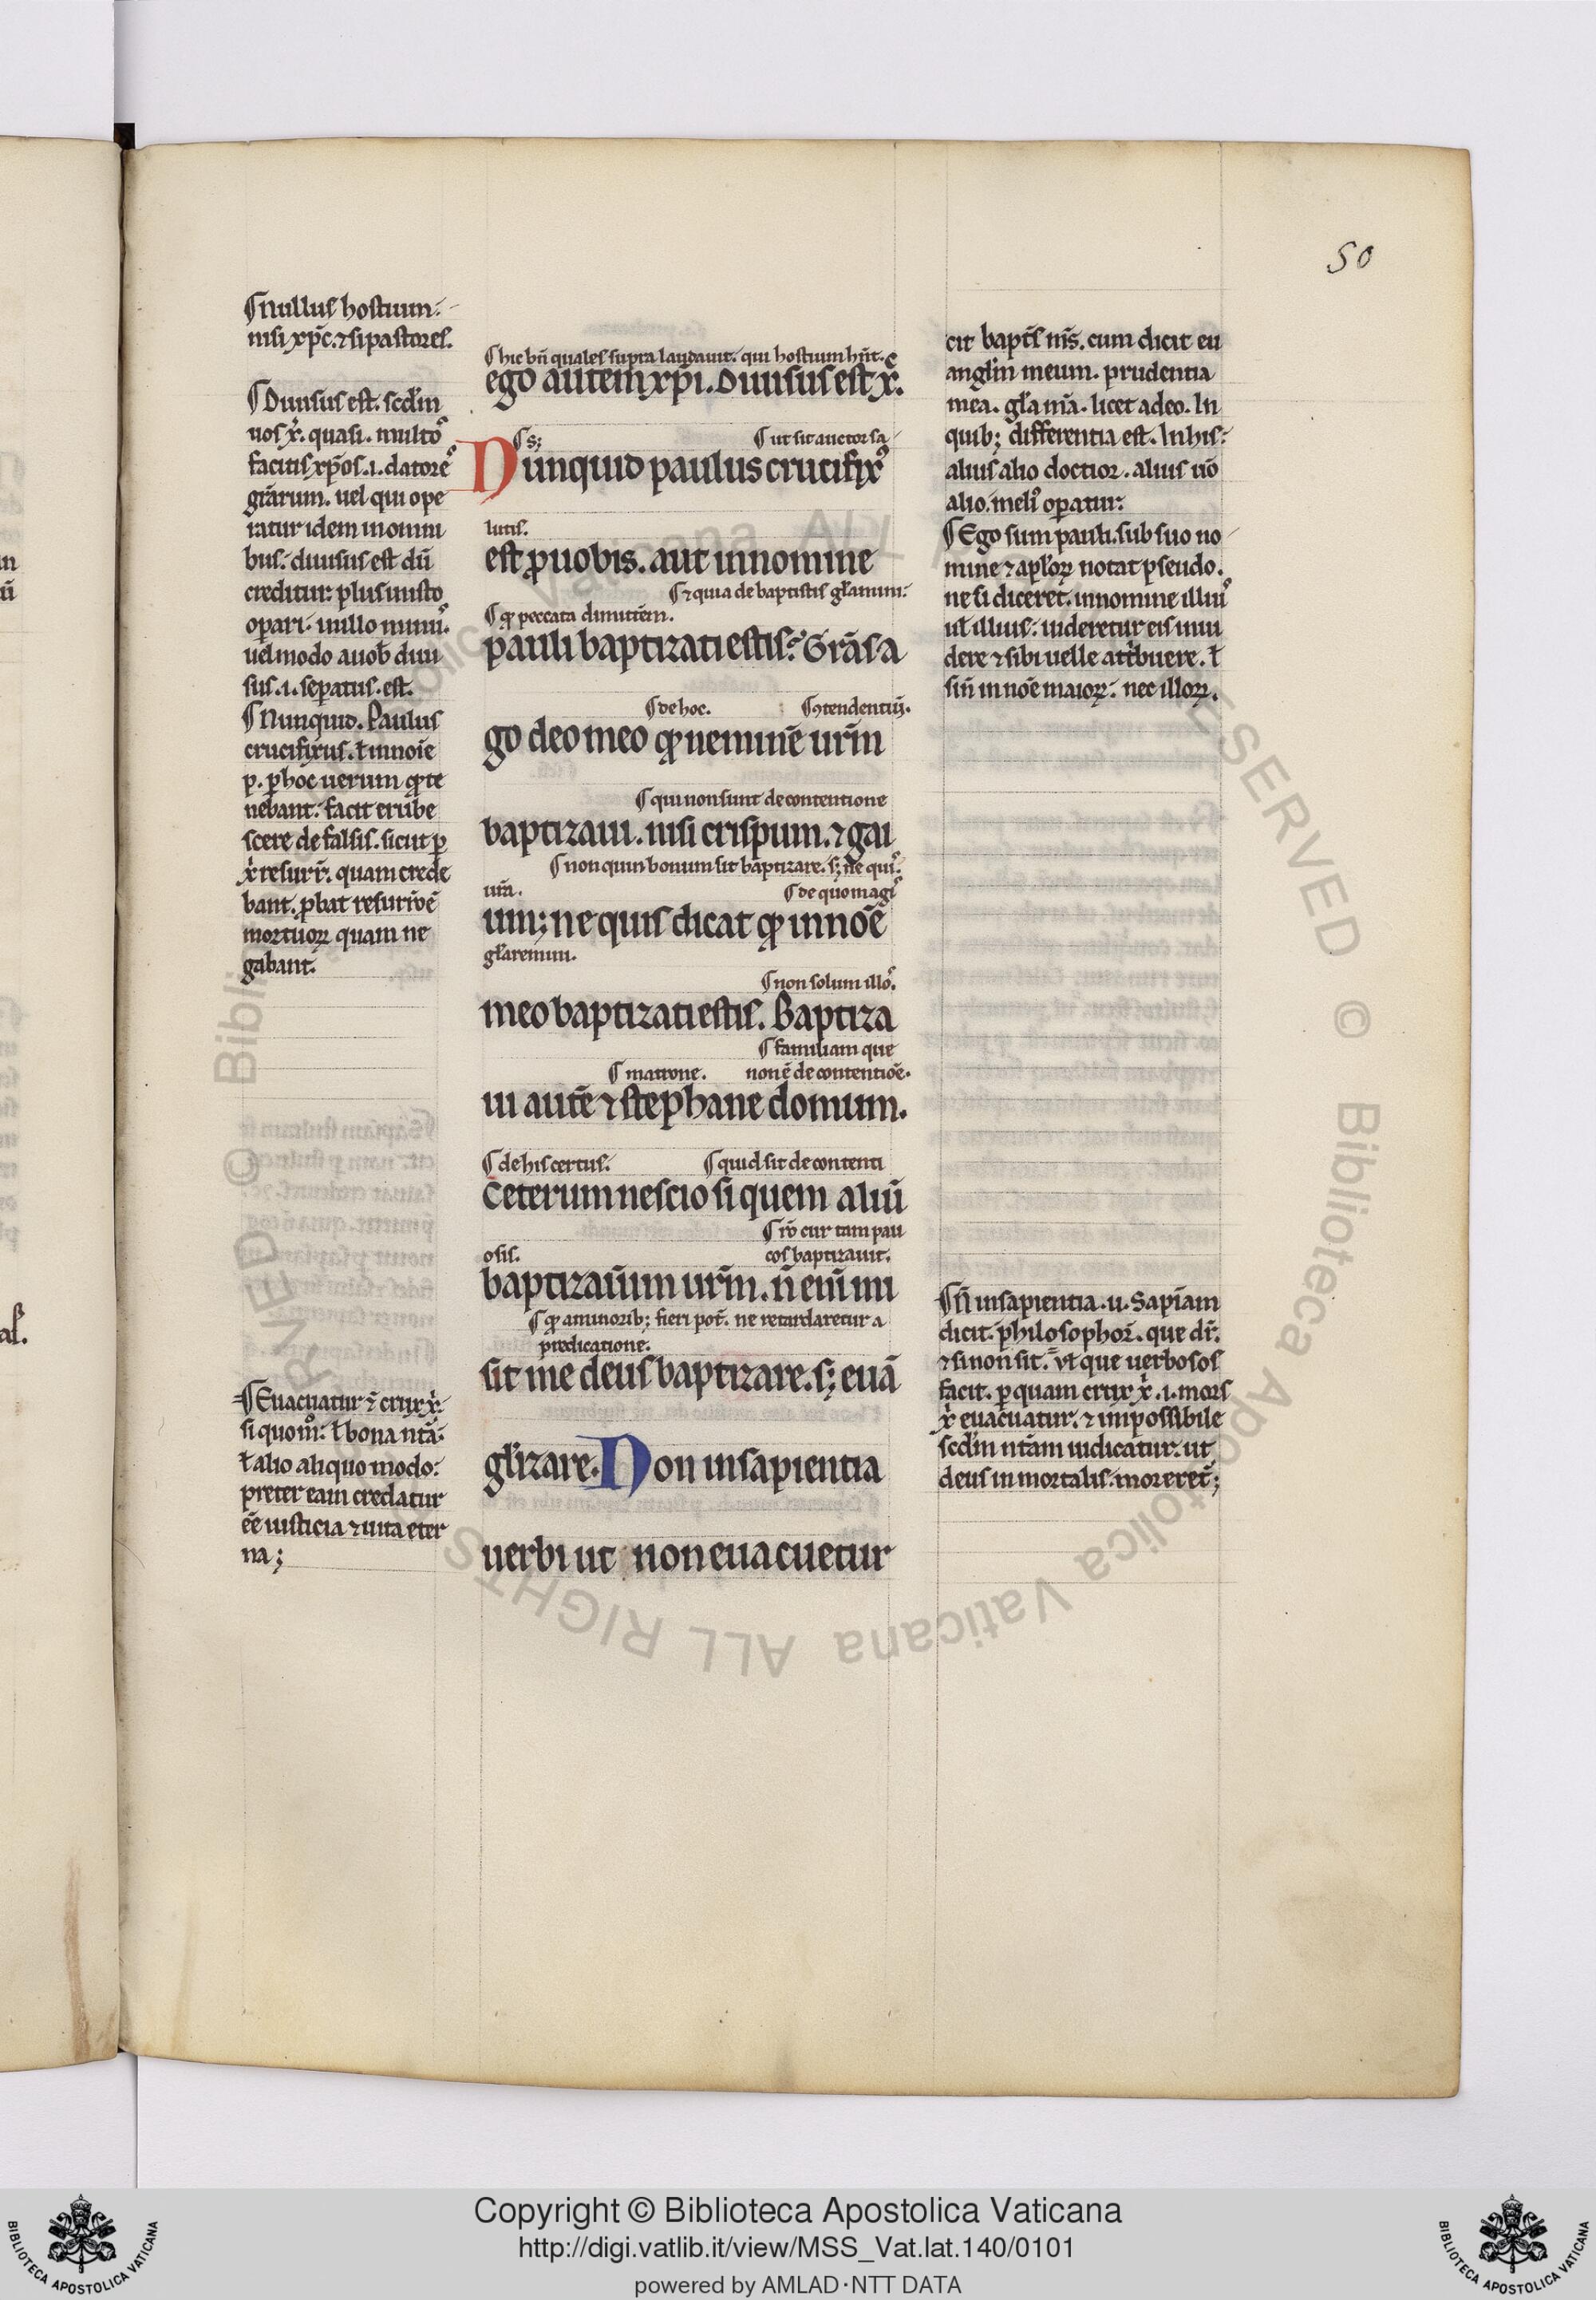 50
¶Nullus hostium.
nisi xp̄c. ⁊ si pastores.
¶Diuisus est. scd̄m
uos x̄. quasi. multoˢ
facitis xp̄os .i. datoreˢ
gr̄arum. uel qui ope
ratur idem in omni
bus. diuisus est dū
creditur plus in isto
oꝑari. in illo minuˢ.
uel modo a uob̄ diui
sus .i. seꝑatus. est.
¶Nunquid. Paulus
crucifixus. ł in noīe
p. ꝑ hoc uerum qđ te
nebant. facit erube
scere de falsis. sicut ꝑ
x̄ resurr̄. quam crede
bant. ꝓbat resurr̄oē
mortuoꝝ quam ne
gabant.
¶Euacuatur ē crux x̄.
si quom̊. ł bona nt̄a.
ł alio aliquo modo.
preter eam credatur
eē iusticia ⁊ uita eter
na;
¶hic bn̄ quales supra laudauit. qui hostium hn̄t.
ego autem xp̄i. Diuisus est x̄.
¶s; ¶ut sit auctor sa
Nunquid paulus crucifixꝰ
lutis.
est ꝓ uobis. aut in nomine
¶⁊ quia de baptistis gl̄amini.
¶qđ peccata dimittēm.
pauli baptizati estis? Grās a
¶de hoc. ¶ꝯtendentiū.
go deo meo qđ neminē ur̄m
¶qui non sunt de contentione
baptizaui. nisi crispum. ⁊ gai
¶non quin bonum sit baptizare. s; ne quiˢ.
ur̄a. ¶de quo magiˢ
um; ne quis dicat qđ in noīe
gl̄aremini.
¶non solum illoˢ.
meo baptizati estis. Baptiza
¶familiam que
¶matrone. non ē de contentiōe.
ui autē ⁊ stephane domum.
¶de his certus. ¶quid sit de contenti
Ceterum nescio si quem aliū
¶rō cur tam pau
osis. cos baptizauit.
baptizauīm ur̄m. n̄ enī mi
¶qđ a minorib; fieri pot̄. ne retardaretur a
predicatione.
sit me deus baptizare. s; euā
gl̄izare. Non in sapientia
uerbi ut non euacuetur
cit bapt̄s m̄s. cum dicit eu
angl̄m meum. prudentia
mea. gl̄a m̄a. licet a deo. In
quib; differentia est. In his.
alius alio doctior. alius uō
alio. meliˢ oꝑatur.
¶Ego sum pauli. sub suo no
mine ⁊ apl̄oꝝ notat pseudo.
ne si diceret. in nomine illiuˢ
ul̄ illius. uideretur eis inui
dere ⁊ sibi uelle attribuere. ł
sin̄ in noīe maioꝝ. nec illoꝝ.
¶N̄ in sapientia .u. Sapīam
dicit. philosophoꝝ. que dr̄.
⁊ si non sit. Vt que uerbosos
facit. ꝑ quam crux x̄ .i. mors
x̄ euacuatur. ⁊ impossibile
scd̄m nt̄am iudicatur. ut
deus inmortalis. moreret̄;
Copyright © Biblioteca Apostolica Vaticana
http://digi.vatlib.it/view/MSS_Vat.lat.140/0101
powered by AMLAD·NTT DATA